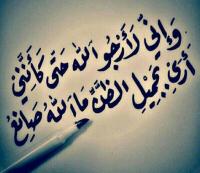 وَإِنِّي لَأَرْجُو اللهَ حَتَّى كَأَنَّنِي
أَرَى بِجَمِيلِ الظَّنِّ مَا اللهُ صَانِعُ